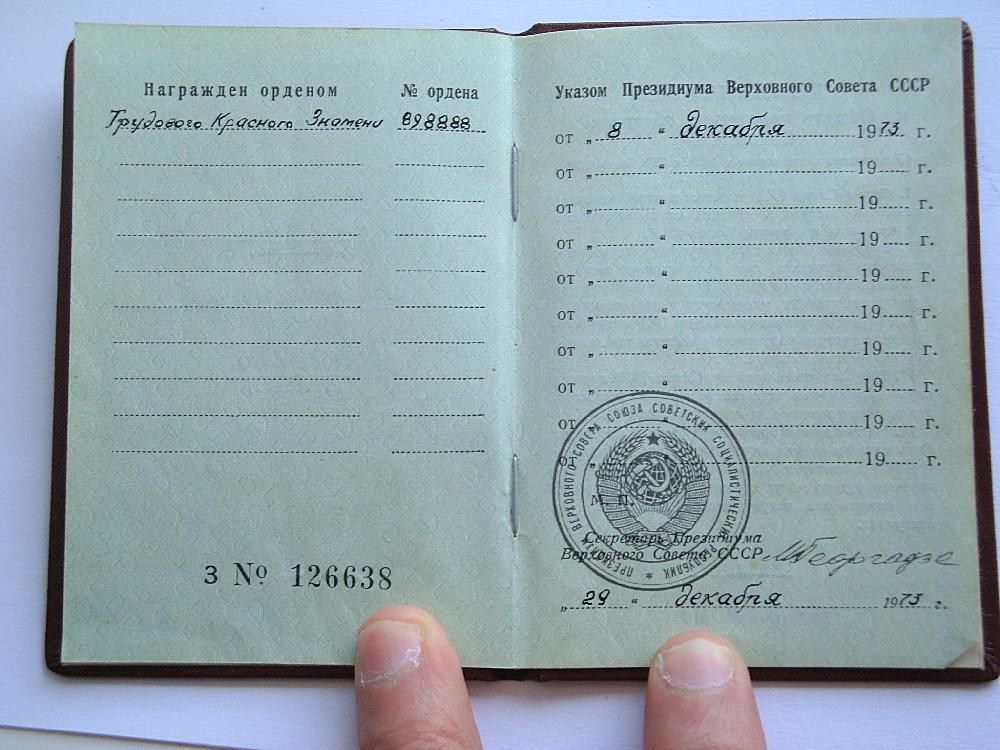 Награжден орденом
№ ордена
Трудового Красного Знамени 898888
З № 126638
Указом Президиума Верховного Совета СССР
от „ 8 “ декабря 1973 г.
от „ “ 19 г.
от „ “ 19 г.
от „ “ 19 г.
от „ “ 19 г.
от „ “ 19 г.
от „ “ 19 г.
от „ “ 19 г.
от „ “ 19 г.
от „ “ 19 г.
ПРЕЗИДИУМ ВЕРХОВНОГО СОВЕТА СОЮЗА СОВЕТСКИХ СОЦИАЛИСТИЧЕСКИХ РЕСПУБЛИК *
М. П.
Секретарь Президиума
Верховного Совета СССР М Георгадзе
„ 29 “ декабря 1973 г.